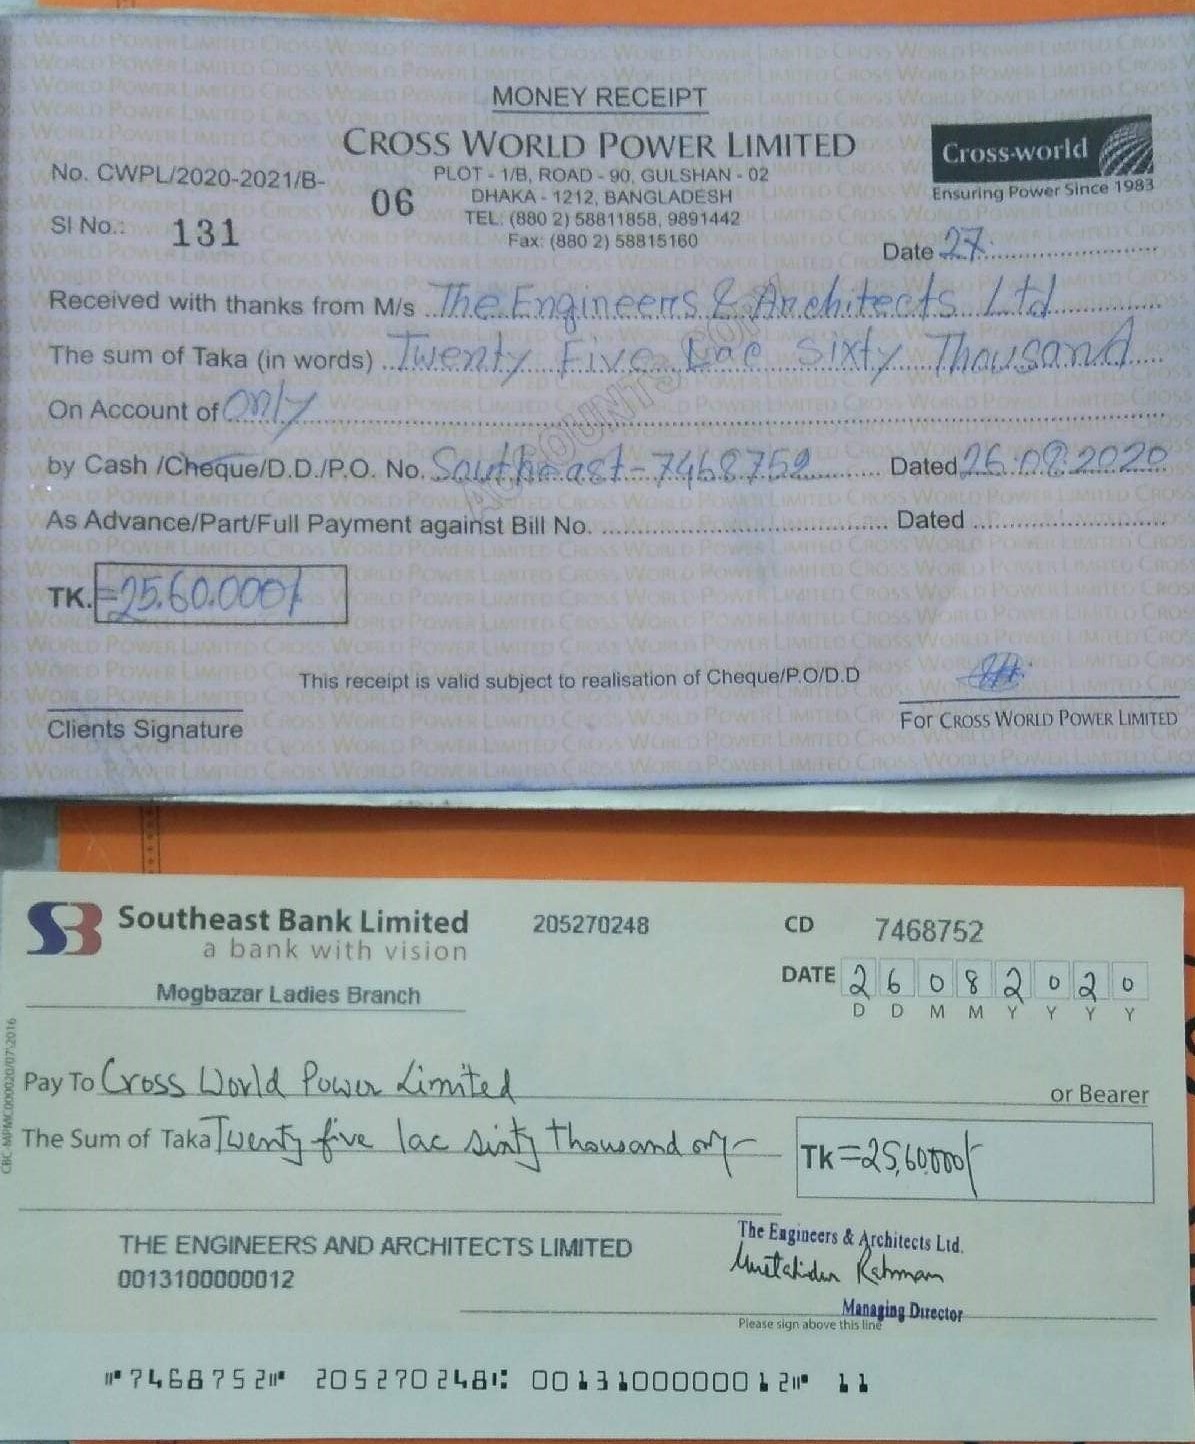 MONEY RECEIPT
CROSS WORLD POWER LIMITED
Cross-world
Ensuring Power Since 1983
No. CWPL/2020-2021/B- 06
PLOT - 1/B, ROAD - 90, GULSHAN - 02
DHAKA - 1212, BANGLADESH
Sl No.: 131
TEL: (880 2) 58811858, 9891442
Fax: (880 2) 58815160
Date 27
Received with thanks from M/s The Engineers & Architects Ltd
The sum of Taka (in words) Twenty Five Lac Sixty Thousand
On Account of only
by Cash /Cheque/D.D./P.O. No. Southeast-7468752 Dated 26.08.2020
As Advance/Part/Full Payment against Bill No. Dated
TK. =25.60.000/
This receipt is valid subject to realisation of Cheque/P.O/D.D
Clients Signature
For CROSS WORLD POWER LIMITED
Southeast Bank Limited 205270248 CD 7468752
a bank with vision
Mogbazar Ladies Branch
DATE 2 6 0 8 2 0 2 0
D D M M Y Y Y Y
Pay To Cross World Power Limited or Bearer
The Sum of Taka Twenty five lac sixty thousand only
Tk =25,60,000/
THE ENGINEERS AND ARCHITECTS LIMITED
0013100000012
The Engineers & Architects Ltd.
Rahman
Managing Director
Please sign above this line
⑈7468752⑈ 205270248⑆ 0013100000012⑈ 11